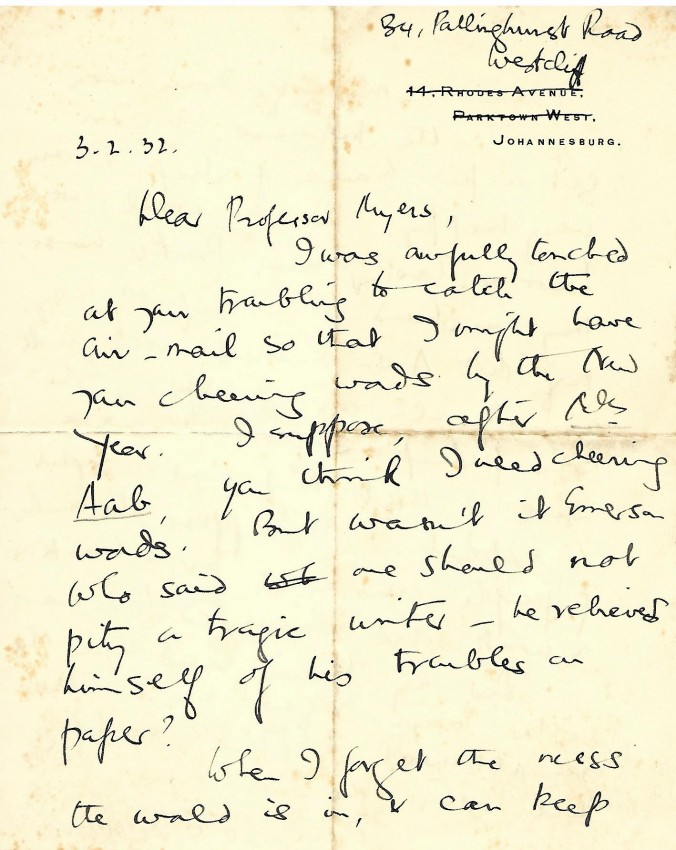 34, Pallinghurst Road
Westcliff
14, Rhodes Avenue,
Parktown West,
Johannesburg.
3.2.32.
Dear Professor Myers,
I was awfully touched
at your troubling to catch the
air-mail so that I might have
your cheering words by the New
Year. I suppose, after Mrs
Aab, you think I need cheering
words. But wasn't it Emerson
who said one should not
pity a tragic writer – he relieved
himself of his troubles on
paper?
When I forget the mess
the world is in, & can keep